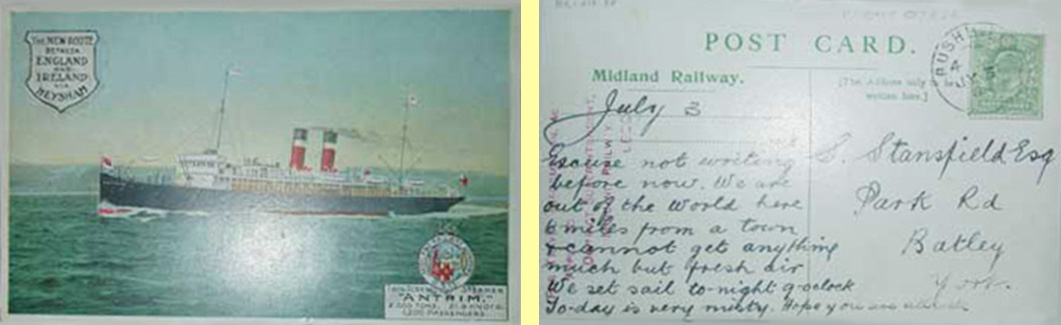 THE NEW ROUTE
BETWEEN
ENGLAND
AND
IRELAND
VIA
HEYSHAM
STEAMER
"ANTRIM."
POST CARD.
Midland Railway.
[The Address only to be
written here.]
BUSHM
July 3
Excuse not writing
before now. We are
out of the world here
6 miles from a town
& cannot get anything
much but fresh air
We set sail to-night 9 o'clock
To-day is very misty. Hope you are
S. Stansfield Esq
Park Rd
Batley
York.